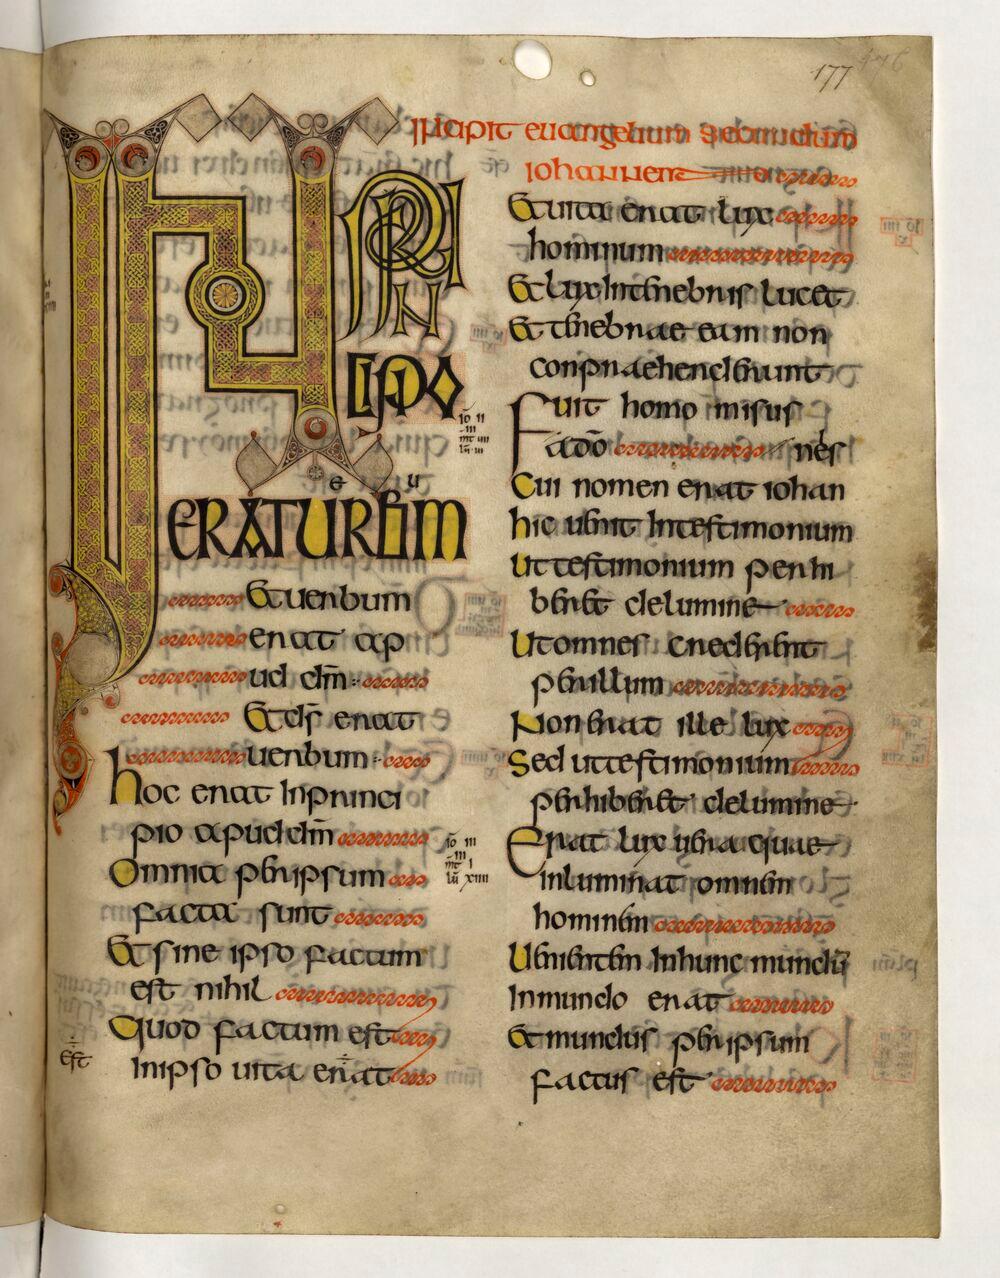 177 476
Incipit euangelium secundum
Iohannen
IN PRIN
CIPIO
io ii
iii
mt iii
lu iii
e u
ERAT UERBUM
Et uerbum
erat ap
ud dm̄
Et ds̄ erat
uerbum
hoc erat Inprinci
pio apud dm̄
io iii
iii
mt i
lū xiiii
Omnia per ipsum
facta sunt
Et sine ipso factum
est nihil
Quod factum est
est
Inipso uita erat
Et uita erat lux
hominum
Et lux Intenebris lucet
Et tenebrae eam non
conpraehenderunt
Fuit homo misus
ado
nes
Cui nomen erat iohan
hic uenit Intestimonium
Ut testimonium perhi
beret delumine
Utomnes crederent
perillum
Non erat ille lux
Sed uttestimonium
perhiberet delumine
Erat lux uera quae
inluminat omnem
hominem
Uenientem Inhunc mundū
Inmundo erat
Et mundus per ipsum
factus est